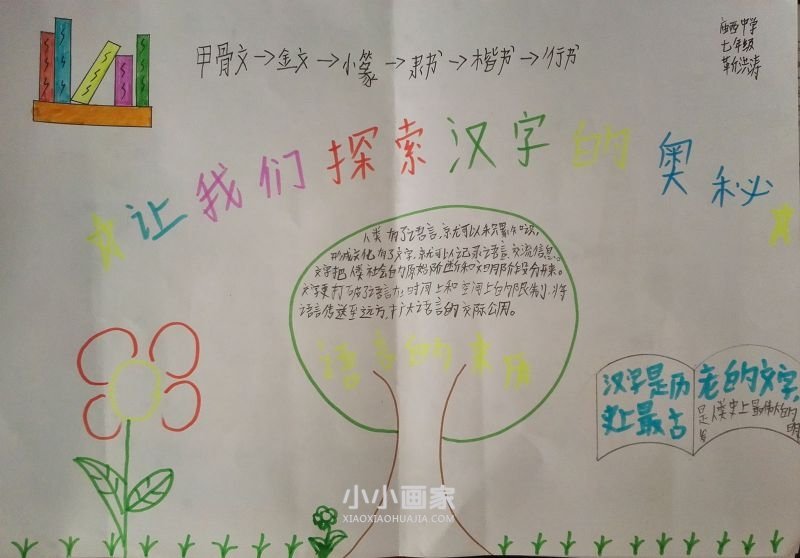 庙西中学
七年级
甲骨文→金文→小篆→隶书→楷书→行书
让我们探索汉字的奥秘
人类有了语言,就可以积累知识,
形成文化,有了文字,就可以记录语言,交流信息。
文字把人类社会的原始阶段和文明阶段分开来。
文字更打破了语言在时间上和空间上的限制,将
语言传送至远方,扩大语言的交际公用。
语言的来历
汉字是历
史上最古
老的文字,
是人类史上最伟大的
发明
小小画家
XIAOXIAOHUAJIA.COM